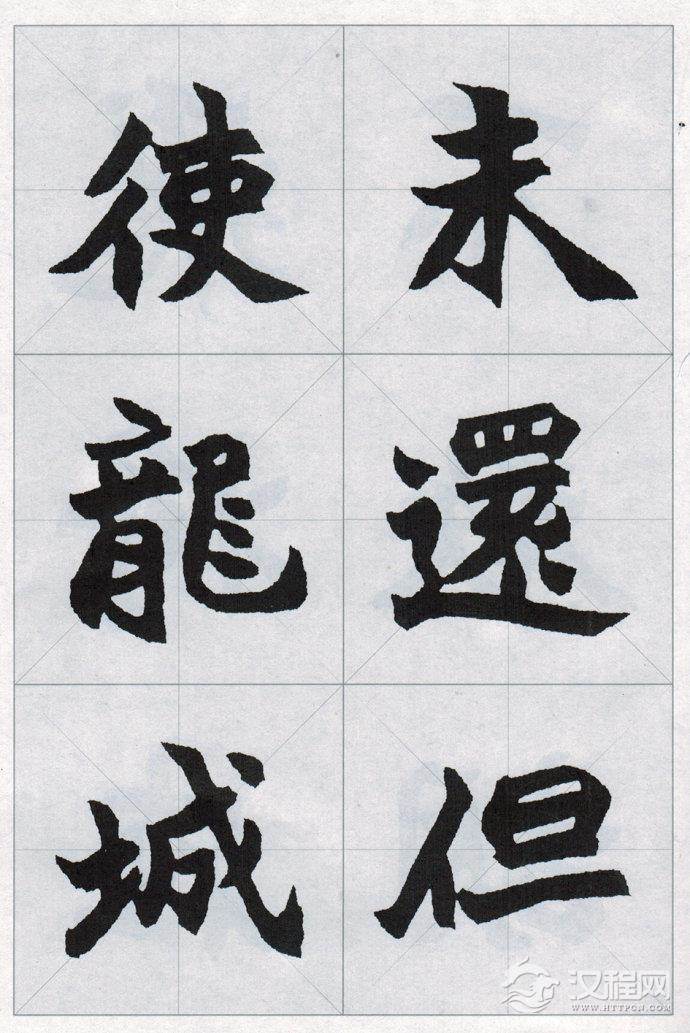 未還但
使龍城
汉程网
WWW.HTTPCN.COM